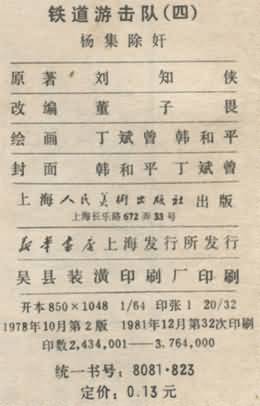 铁道游击队(四)
杨集除奸
原著 刘知侠
改编 董子畏
绘画 丁斌曾 韩和平
封面 韩和平 丁斌曾
上海人民美術出版社出版
上海长乐路672弄33号
新华書店上海发行所发行
吴县装潢印刷厂印刷
开本850×1048 1/64 印张1 20/32
1978年10月第2版 1981年12月第32次印刷
印数2,434,001—3,764,000
统一书号:8081·823
定价:0.13元